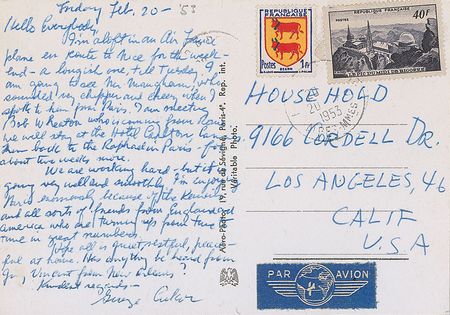 Friday Feb. 20 - '53
Hello Everybody,
I'm aloft in an Air France
plane en route to Nice for the week-
end - a long(ish) one, till Tuesday. I
am going to see Mr. Maugham, who
sounded so chipper and cheery when I
spoke to him from Paris. I am meeting
Bob Wheaton who is coming from Rome
we will stay at the Hotel Carlton
then back to the Raphael in Paris - for
about two weeks more.
We are working hard - but it is
going very well and smoothly. I'm enjoying
Paris enormously because of the
and all sorts of friends from England and
America who are turning up from time to
time in great numbers.
Hope all is quiet, restful, peace-
ful at home. Has anything been heard from
Vincent from New Orleans?
Kindest regards -
George Cukor
Paris-4e. Repr. int.
Véritable Photo.
RÉPUBLIQUE FRANÇAISE
Postes
BÉARN
1F
RÉPUBLIQUE FRANÇAISE
POSTES
40F
PIC DU MIDI DE BIGORRE
20
1953
HOUSEHOLD
9166 CORDELL DR.
LOS ANGELES, 46
CALIF
U.S.A
PAR AVION